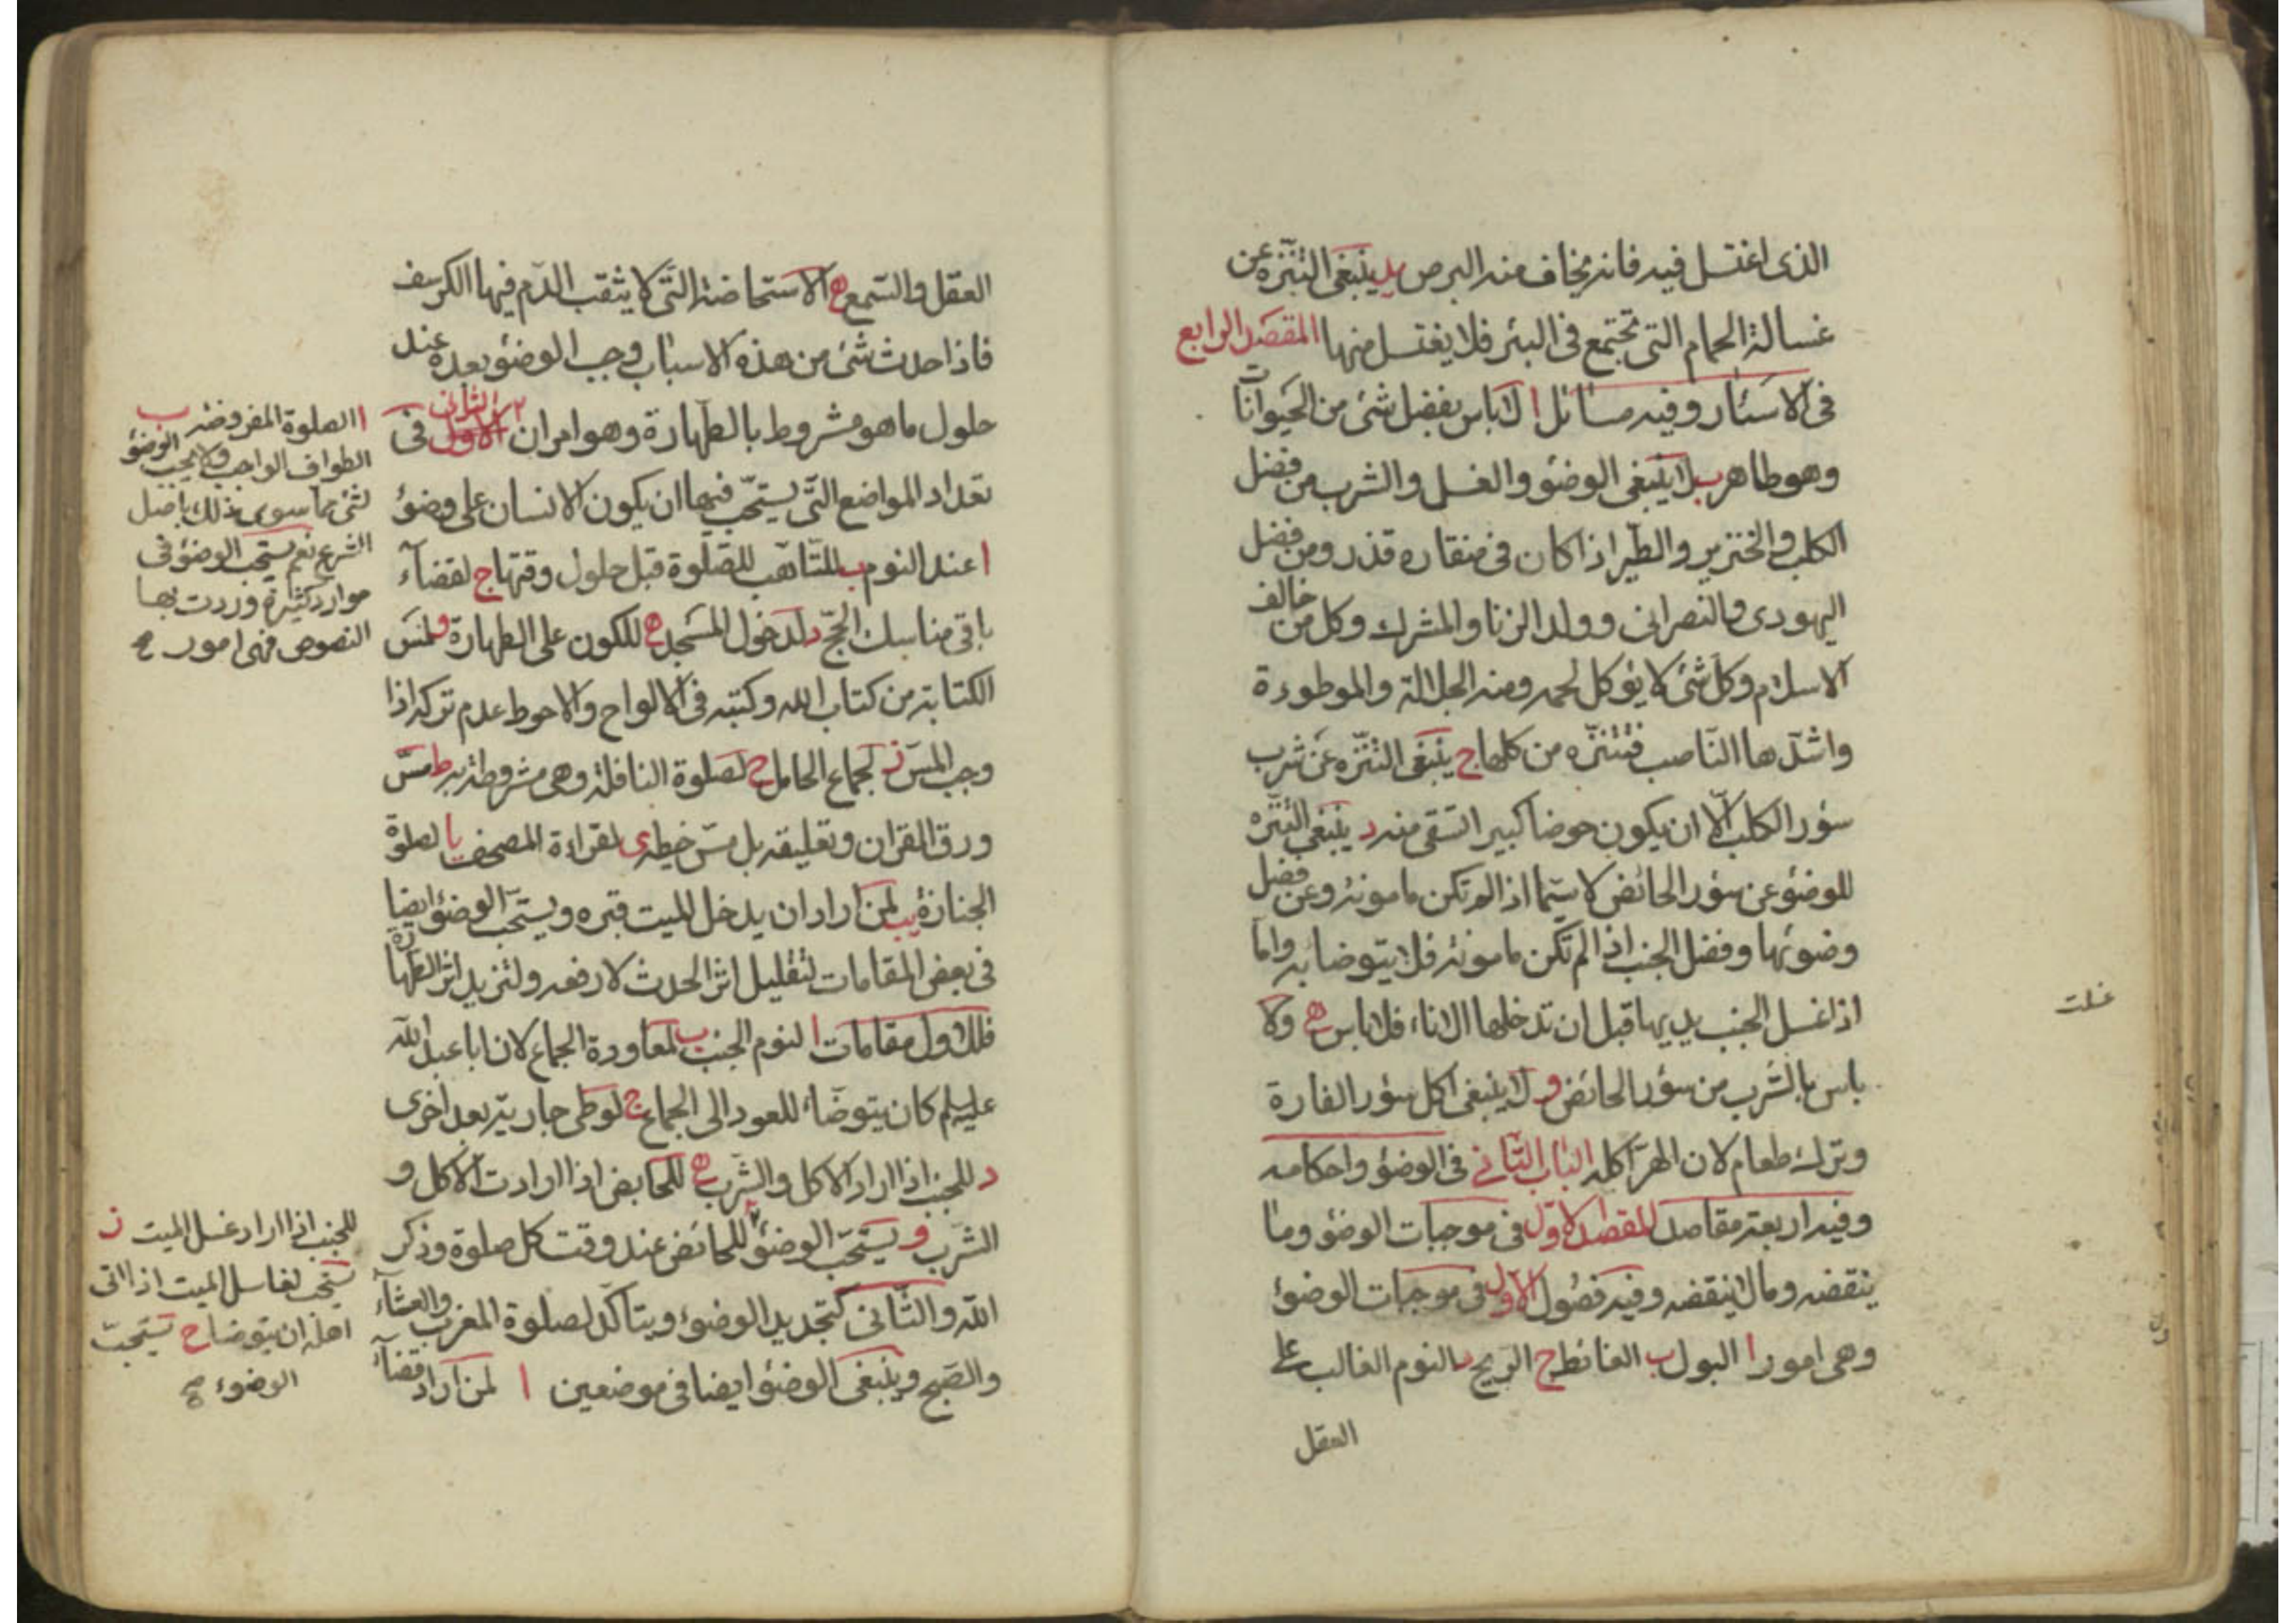 الذى اغتسل فيه فانه يخاف منه البرص يد ينبغى التنزه عن
غسالة الحمام التى تجتمع فى البئر فلا يغتسل منها المقصد الرابع
فى الاسئار وفيه مسائل ا لا باس بفضل شئ من الحيوانات
وهو طاهر ب لا ينبغى الوضوء والغسل والشرب من فضل
الكلب والخنزير والطير اذا كان فى منقاره قذر ومن فضل
اليهودى والنصرانى وولد الزنا والمشرك وكل من خالف
الاسلام وكل شئ لا يؤكل لحمه ومنه الجلالة والموطورة
واشدها الناصب فتنزه من كلها ج ينبغى التنزه عن شرب
سؤر الكلب الا ان يكون حوضا كبيرا استقى منه د ينبغى التنزه
للوضوء عن سؤر الحائض لا سيما اذا لم تكن مامونة وعن فضل
وضوئها وفضل الجنب اذا لم تكن مامونة فلا يتوضا به واما
اذا غسل الجنب يديها قبل ان تدخلها الاناء فلا باس ه ولا
غسلت
باس بالشرب من سؤر الحائض و لا ينبغى اكل سؤر الفارة
وترك طعام لان الهر اكله الباب الثانى فى الوضوء واحكامه
وفيه اربعة مقاصد المقصد الاول فى موجبات الوضوء وما
ينقضه وما لا ينقضه وفيه فصول الاول فى موجبات الوضوء
وهى امور ا البول ب الغائط ج الريح د النوم الغالب على
العقل
العقل والسمع ه الاستحاضة التى لا يثقب الدم فيها الكرسف
فاذا حدث شئ من هذه الاسباب وجب الوضوء بعده عند
حلول ما هو مشروط بالطهارة وهو امران الاول الثانى فى
تعداد المواضع التى يستحب فيها ان يكون الانسان على وضوء
ا عند النوم ب للتاهب للصلوة قبل حلول وقتها ج لقضاء
باقى مناسك الحج د لدخول المسجد ه للكون على الطهارة و لمس
الكتابة من كتاب الله وكتبه فى الالواح والاحوط عدم تركه اذا
وجب المس ز لجماع الحامل ح لصلوة النافلة وهى مشروطة به ط مس
ورق القران وتعليقه بل مس خيطه ى لقراءة المصحف يا لصلوة
الجنازة يب لمن اراد ان يدخل الميت قبره ويستحب الوضوء ايضا
فى بعض المقامات لتقليل اثر الحدث لا رفعه ولتزيد اثر الطهارة
فللاول مقامات ا لنوم الجنب ب لمعاودة الجماع لان ابا عبد الله
عليه السلم كان يتوضاء للعود الى الجماع ج لوطى جارية بعد اخرى
د للجنب اذا اراد الاكل والشرب ه للحايض اذا ارادت الاكل و
الشرب و يستحب الوضوء للحائض عند وقت كل صلوة وذكر
الله والثانى كتجديد الوضوء ويتاكد لصلوة المغرب والعشاء
والصبح وينبغى الوضوء ايضا فى موضعين ا لمن اراد قضاء
ا الصلوة المفروضة ب
الطواف الواجب ولا يجب الوضوء
لشئ مما سوى ذلك باصل
الشرع نعم يستحب الوضوء فى
موارد كثيرة وردت بها
النصوص فهى امور صح
للجنب اذا اراد غسل الميت ز
يستحب لغاسل الميت اذا اتى
اهله ان يتوضا ح يستحب
الوضوء صح